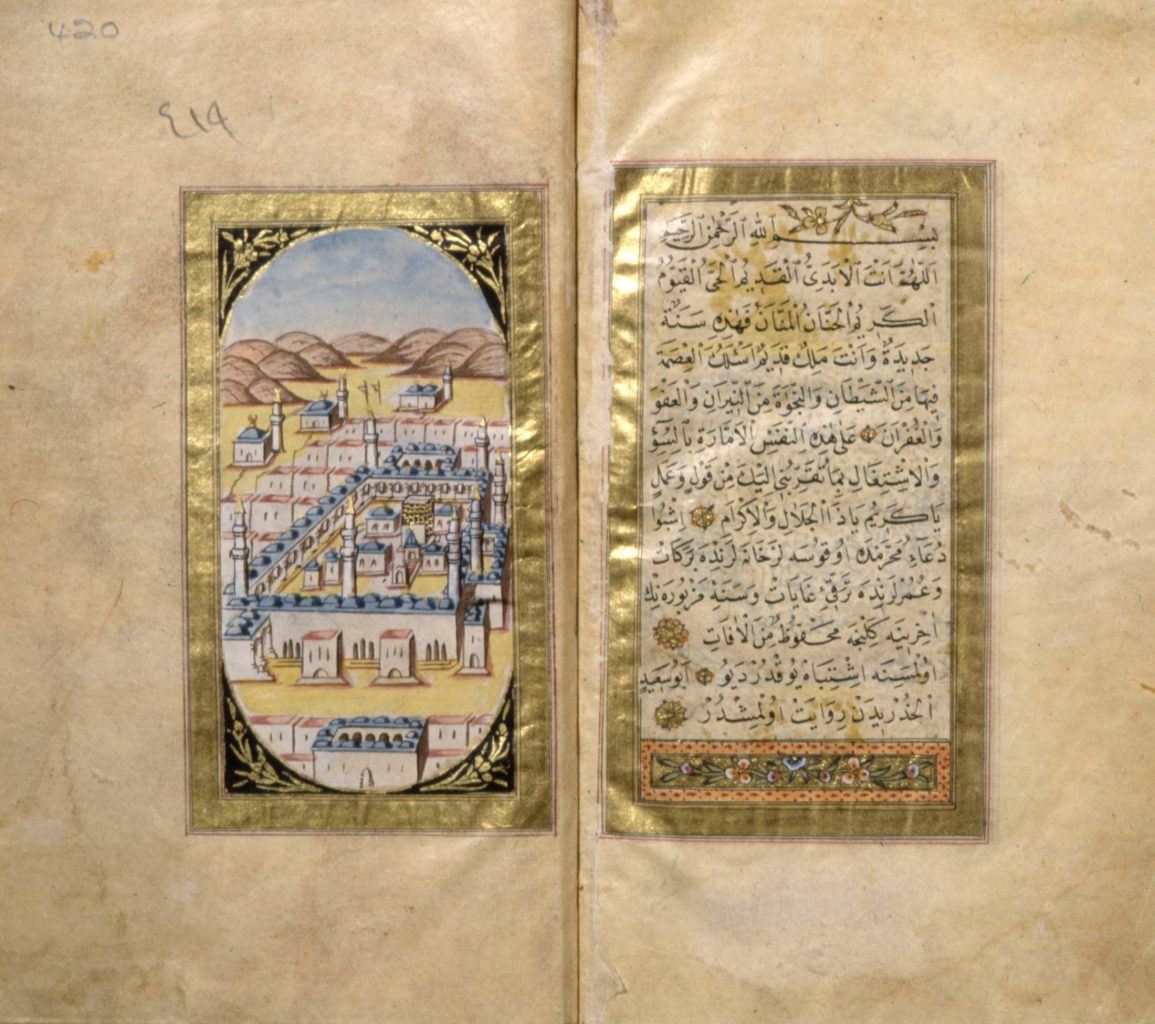 420
٤١٩
بسم الله الرحمن الرحيم
اَللّٰهُمَّ اَنْتَ الْاَبَدِىُّ الْقَدِيمُ الْحَىُّ الْقَيُّومُ
الْكَرِيمُ الْحَنَّانُ الْمَنَّانُ فَهٰذِهِ سَنَةٌ
جَدِيدَةٌ وَاَنْتَ مَلِكٌ قَدِيمٌ اَسْئَلُكَ الْعِصْمَةَ
فِيهَا مِنَ الشَّيْطَانِ وَالنَّجْوَةَ مِنَ النِّيرَانِ وَالْعَفْوَ
وَالْغُفْرَانَ عَلٰى هٰذِهِ النَّفْسِ الْاَمَّارَةِ بِالسُّوءِ
وَالْاِشْتِغَالِ بِمَا تُقَرِّبُنِى اِلَيْكَ مِنْ قَوْلٍ وَعَمَلٍ
يَا كَرِيمُ يَا ذَا الْجَلَالِ وَالْاِكْرَامِ اشبو
دُعَاءِ مُحَرَّمْدَه اوقوسه لر خانه لرنده بركات
وعمرلرنده ترقئ غايات وسنه مزبوره نك
آخرينه كلنجه محفوظ من الافات
اولمسنه اشتباه يوقدر ديو ابو سعيد
الخدريدن روايت اولمشدر